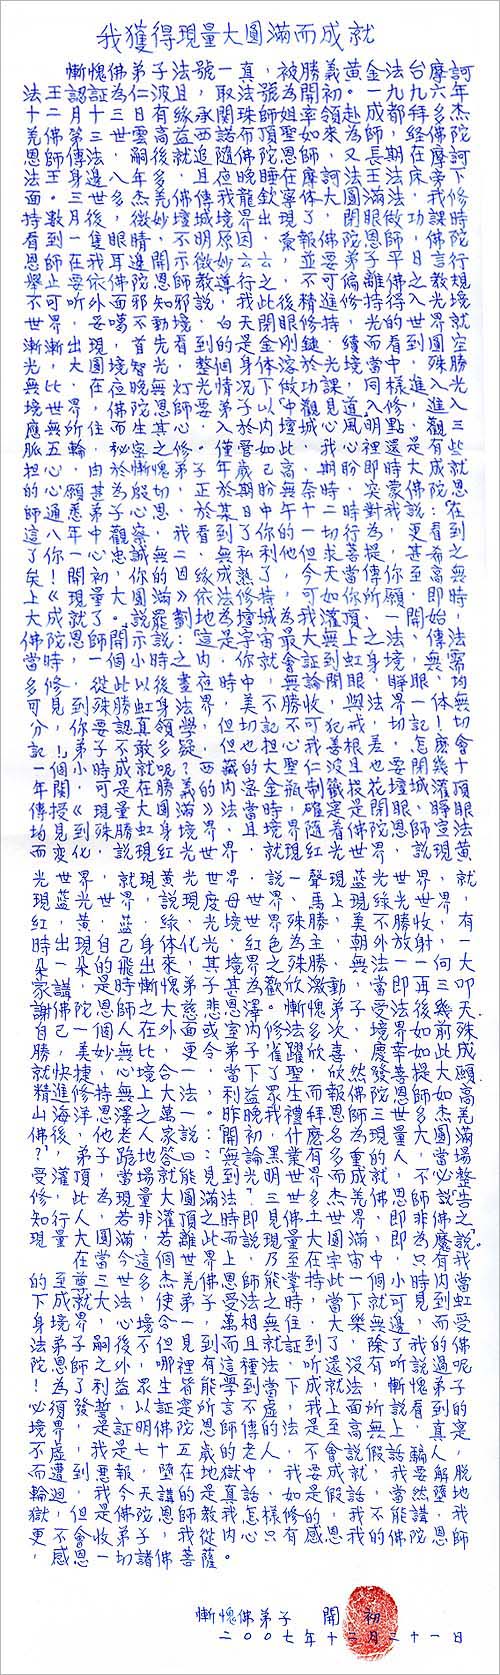 我獲得現量大圓滿而成就
慚愧佛弟子法號一真，被勝義黃金法台摩訶
法王認証為仁波且，取法號為開初。一九九六年
十二月十三日有緣承聞珠姐介赴成都拜多杰
羌佛第三世雲高益西諾布頂聖如來為師，經佛陀
恩師傳法，嗣後就追隨佛陀恩師，又長期在摩訶
法王身邊八年多，且夜晚睡在摩訶法王法床旁下
面。三世多杰羌佛傳我龍欽寧体大圓滿法，我修
持數月後，微妙壇城境界出現了，閉眼做功課時
看到一隻眼睛，不明原因，稟報佛陀恩師，佛陀
恩師在我耳邊開示微妙六六，並要弟子平日言行
舉止要依佛陀恩師教導行之，不可偏離佛之教規
不可听外面邪知邪說，我此後精進修持得入光境
世界，妄噶不動境，白天閉眼修持，光的世界就
漸漸出現，首先看到的是金剛鏈，續而看到圓空
光，大圓境智光，整個身体溶於光境當中，殊勝
無比，在夜晚無灯光情況下做功課，同樣進入光
境世界，佛陀恩師要弟子以「中觀見道」入修，進入
應無所住而生其心，入於內壇城風明點，觀三
脈五輪，秘密之修。僅管如此，我心裡還是有些
担心，由於慚愧弟子年歲已高，期盼即時大成就
的心願甚為殷切，正於期盼無奈時，突蒙佛陀恩
師通悉弟子心思，於某日中午十二時對我說：「在
這八年中觀察，我看到了你的一切行為，更看到
了你一心忠誠無二，無私利他但求菩提，甚希之
矣！開初，你的因緣成熟了，今天當傳你至高無
上《現量大圓滿》依法修持，可如你所願，即時
大成就了。」說罷劃地為壇城為我灌頂、一開始，
佛陀恩師開示說：「這是宇宙最大無上之法，傳法
當時，一個小時之內，你就會証到虹身境，無需
多修，從此以後晝夜時中，無論閉眼、睜眼，均
可見到殊勝虹身法界，美不勝收，與法界一体無
分，你要認真領學，但切不可犯戒，切記！切
記！」弟子不敢多疑，但也担心我善根差，怎麼會
一個小時成就呢？西藏的大聖仁波且也要閉幾十
年關，可是在勝義的內密金瓶制籤投花壇城灌頂
傳授《現量大圓滿》法當時，確定是閉眼、睜眼
均見到殊勝虹身境界，且境界隨着佛陀恩師宣法
而變化，說現紅光世界，就現紅光世界，說現黃
光世界，就現黃光世界，說一聲現藍光世界，就
現藍光世界，說現度母世界，馬上現綠光世界，
紅、黃、藍、綠光境界殊勝，美不勝收，有
時出現自己身体化光，紅色為主，朝外放射，一
朵一朵的飛出來，其境界之殊勝，無法一一何三大
家講，是時慚愧弟子甚為歡欣激動，當即再三叩
謝佛陀恩師之大慈悲恩澤。慚愧弟子受法後幾天
自己一個人在外面或室內修法多次，境界如前殊
勝，美妙無比，更令弟子雀躍欣喜，慶幸如此成
就快捷，修持境合一，當下了聖，欣然發菩提大願
精進修持無上大法，利益眾生，而佛陀恩師如高
山海洋恩澤之萬家。昨晚我禮拜恩師三世多杰羌
佛後，他老人家說：「開初，什麼名為現量大圓滿
？」弟子跪地答曰：「無論黑業有多重的人，當場
受灌頂，當場就能見到光明世界而成就，不必整
修，此人為現量圓滿。」三世多杰羌佛恩師當說：「告
知行人，若非大灌頂之時見佛土世界，即非佛之
現量大圓滿，若離此而說現量大圓滿，即為魔說。」
在當今這個世界上，乃至在宇宙中，只有我
的至尊三世多杰羌佛恩師能掌持此一個小時內當
下成就大法，使令弟子受法時，當下就可見到虹
身境界，心境合一，恩萬相無住，大樂無邊而受
法弟子嗣後不但見到而且就証到了，除了我的佛
陀恩師之外，哪裡有這種法，听還沒有听說過呢
！為了利益眾生皆能學到當下成就法，慚愧弟子
必須發誓，証明佛陀恩師不虛的法上面所說看到的
境界是証以定所言傳的法是至高無上，真是
不虛，我是七十五歲的老人，不會說假話騙人，
而遭到惡報，墮在地獄中，我要成就，我要解脫
輪迴，但是今天講的真話，如是假話，當然墮地
獄，我是佛弟子，恩師教我怎樣修的，我不能講，我
更不會收弟子，我從內心只有感恩我的佛陀恩師
，感恩一切諸佛菩薩。
慚愧佛弟子 開初
二00七年十二月三十一日